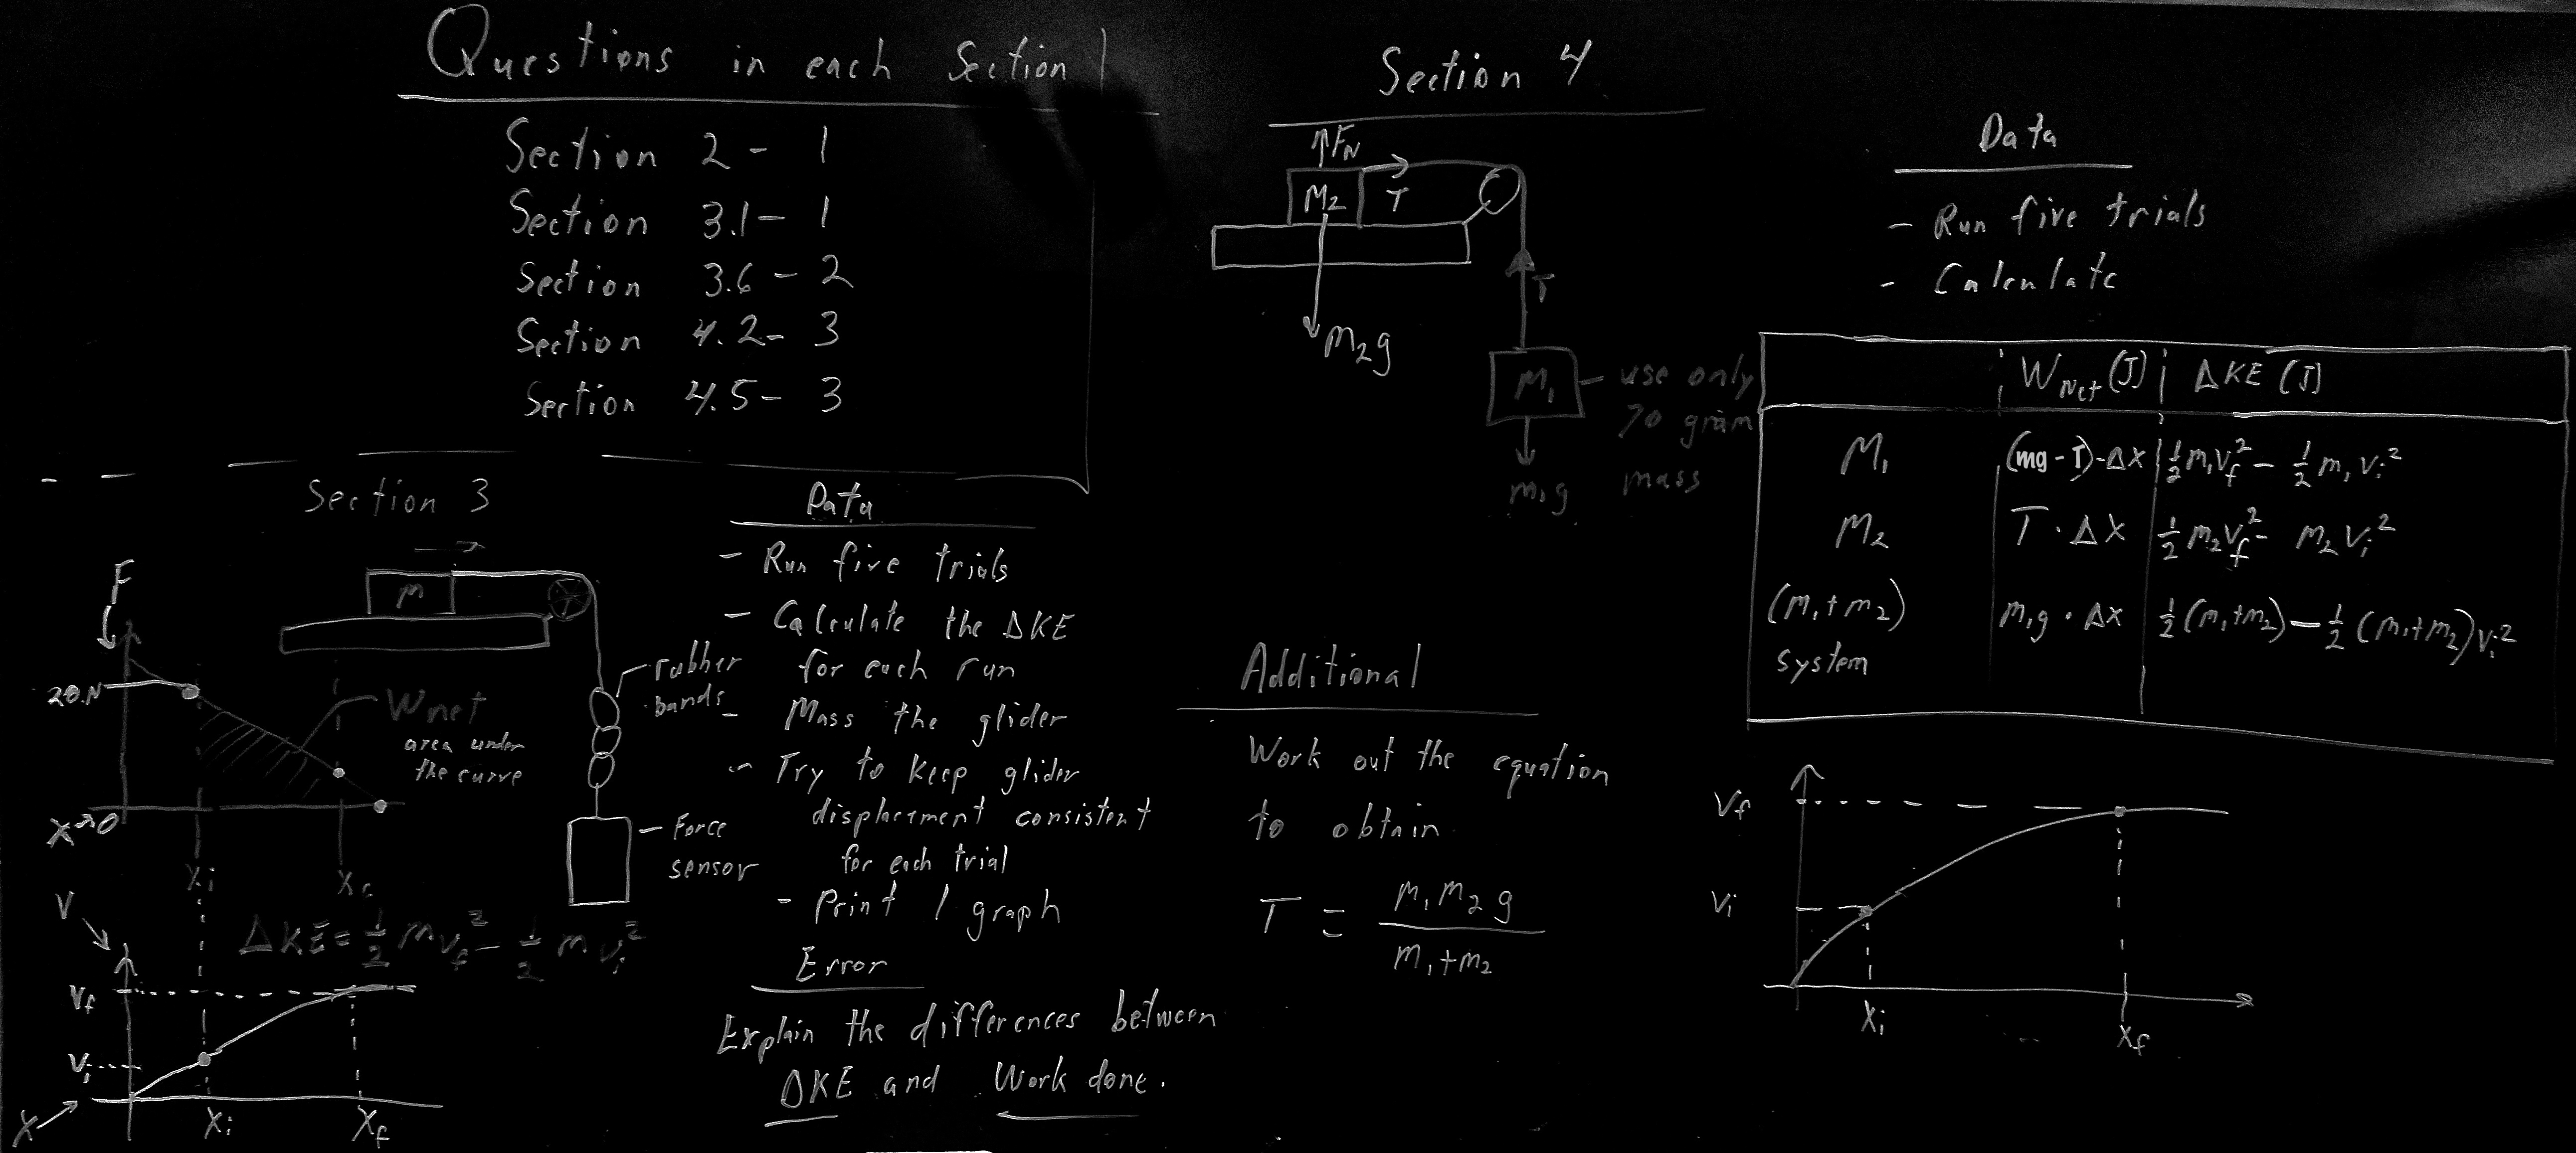 Questions in each Section
Section 2 - 1
Section 3.1 - 1
Section 3.6 - 2
Section 4.2 - 3
Section 4.5 - 3
Section 3
F
20.N
X→0
Xi
Wnet
area under
the curve
M
rubber
bands
Force
sensor
ΔKE = 1/2 m vf² - 1/2 m vi²
V
Vf
Vi
X
Xi
Xf
Data
- Run five trials
- Calculate the ΔKE
for each run
- Mass the glider
- Try to keep glider
displacement consistent
for each trial
- Print 1 graph
Error
Explain the differences between
ΔKE and Work done.
Section 4
FN
M2
T
m2g
T
M1 - use only
70 gram
mass
m1g
Additional
Work out the equation
to obtain
T = m1 m2 g / m1+m2
Data
- Run five trials
- Calculate
WNet (J) ΔKE (J)
M1 (mg - T)·ΔX 1/2 m1 vf² - 1/2 m1 vi²
M2 T·ΔX 1/2 m2 vf² - m2 vi²
(m1+m2) m1g·ΔX 1/2 (m1+m2) - 1/2 (m1+m2) vi²
system
Vf
Vi
Xi
Xf